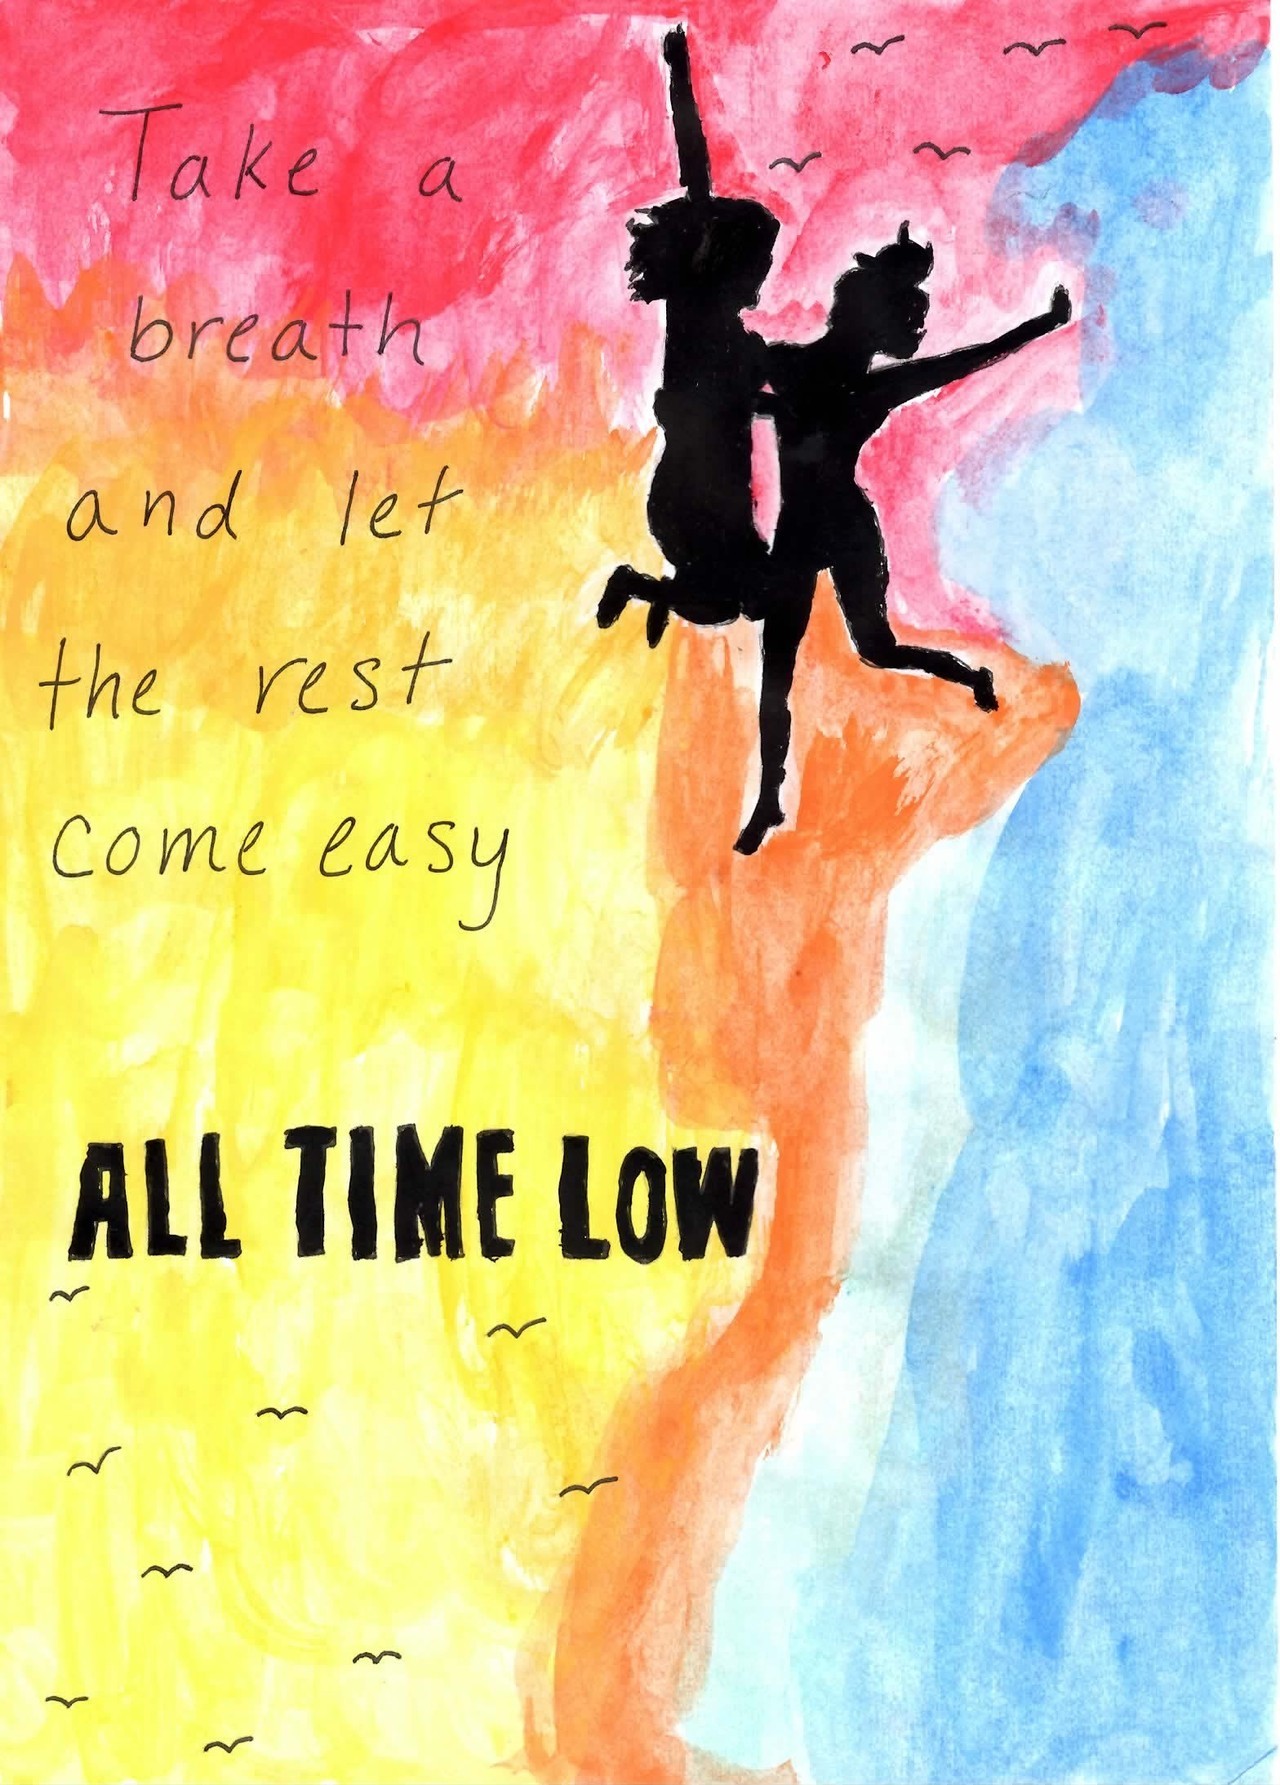 Take a
breath
and let
the rest
come easy
ALL TIME LOW